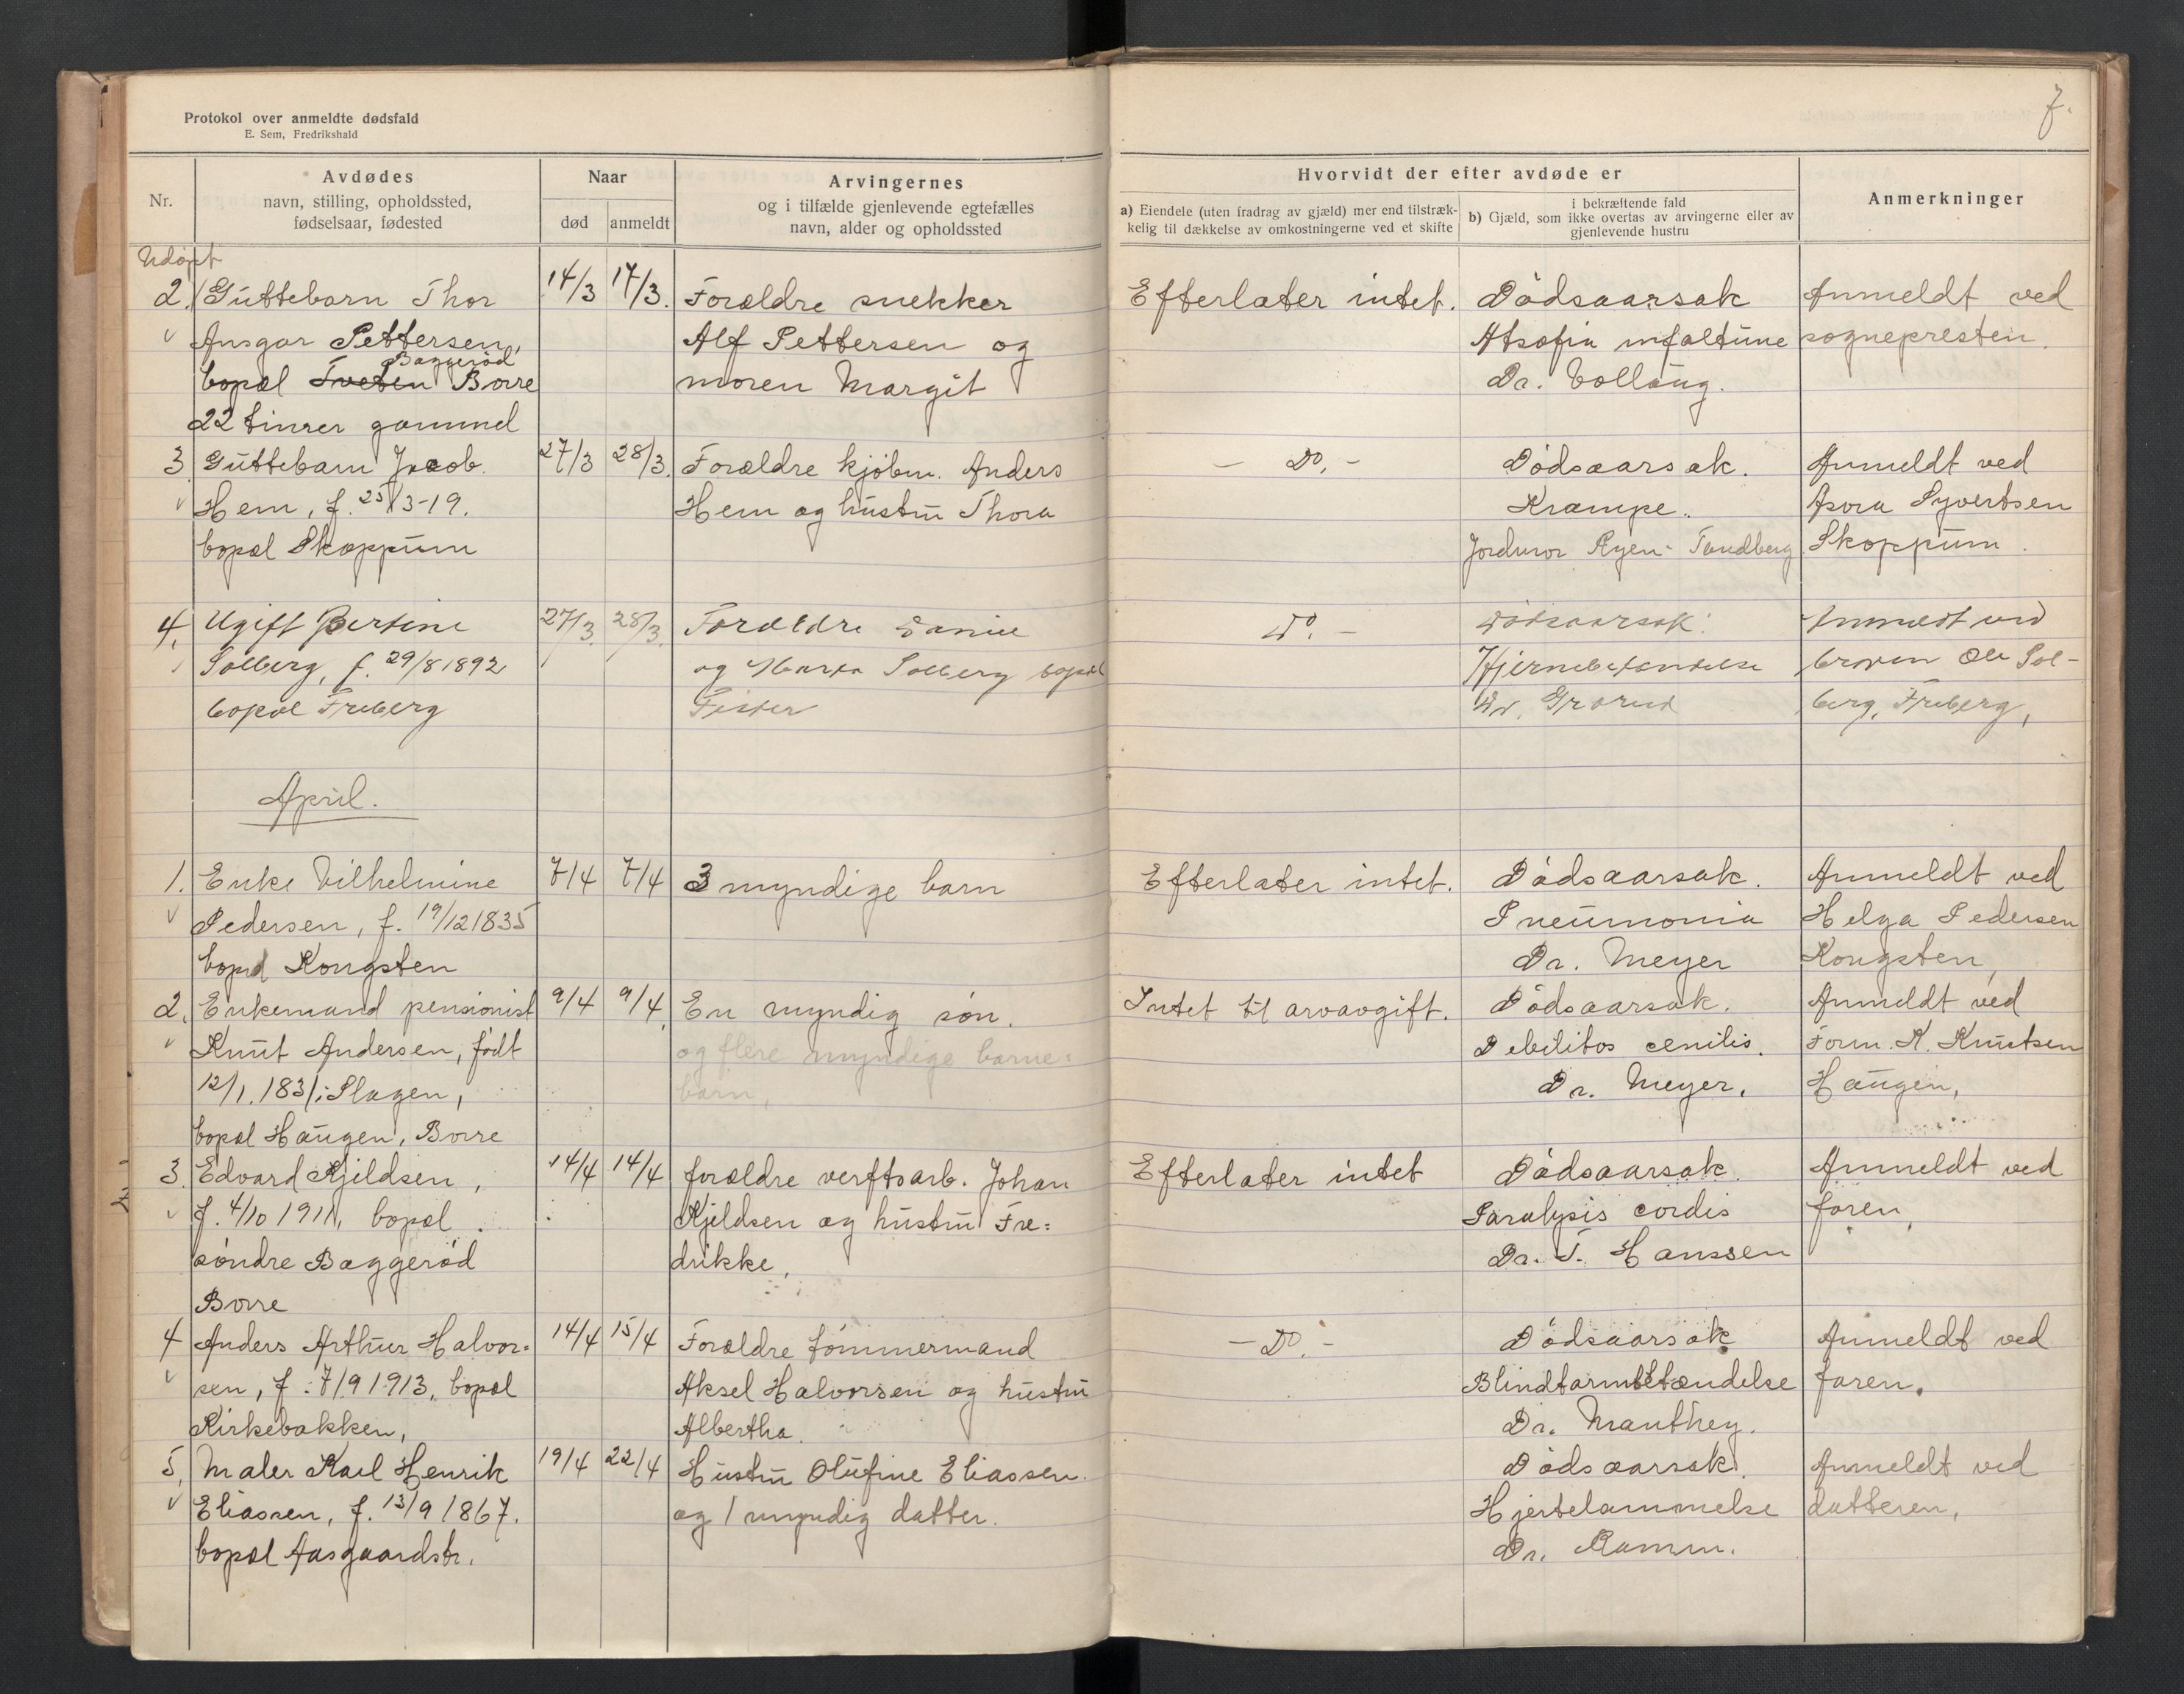 7.
Protokol over anmeldte dødsfald
E. Sem, Fredrikshald
Nr.
Avdødes
navn, stilling, opholdssted,
fødselsaar, fødested
Naar
død
anmeldt
Arvingernes
og i tilfælde gjenlevende egtefælles
navn, alder og opholdssted
Hvorvidt der efter avdøde er
a) Eiendele (uten fradrag av gjæld) mer end tilstræk-
kelig til dækkelse av omkostningerne ved et skifte
i bekræftende fald
b) Gjæld, som ikke overtas av arvingerne eller av
gjenlevende hustru
Anmerkninger
Udøpt
2. Guttebarn Thor 14/3 17/3. Forældre snekker Efterlater intet. Dödsaarsak Anmeldt ved
Ansgar Pettersen, Alf Pettersen og sognepresten.
Baggeröd
bopæl Tveten Borre moren Margit Dr.
22 timer gammel
3 Guttebarn Jacob 27/3 28/3. Forældre kjöbm. Anders - Do. - Dödsaarsak. Anmeldt ved
Hem, f. 25/3-19. Hem og hustru Thora Krampe. Syvertsen
bopæl Skoppum Jordmor Ryen-Sandberg Skoppum.
4. Ugift Bertine 27/3. 28/3. Forældre Daniel Do. - Dödsaarsak: Anmeldt ved
Solberg, f. 29/8 1892 og Marta Solberg bopæl Hjernebetændelse broren Ole Sol-
bopæl Freberg Fister Dr. Grorud berg, Freberg,
April.
1. Enke Vilhelmine 7/4 7/4 3 myndige barn Efterlater intet. Dödsaarsak. Anmeldt ved
Pedersen, f. 19/12 1835 Pneumonia Helga Pedersen
bopæl Kongsten Dr. Meyer Kongsten,
2. Enkemand pensionist 9/4 9/4 En myndig sön. Intet til arvavgift. Dödsaarsak. Anmeldt ved
Knut Andersen, födt og flere myndige barne= Debilitos cenilis. Form. K. Knutsen
12/1. 1831 i Slagen, barn, Dr. Meyer. Haugen,
bopæl Haugen, Borre
3. Edvard Kjeldsen, 14/4 14/4 forældre verftsarb. Johan Efterlater intet Dödsaarsak. Anmeldt ved
f. 4/10 1911, bopæl Kjeldsen og hustru Fre= Paralysis cordis faren,
söndre Baggeröd drikke, Dr. T. Hanssen
Borre
4 Anders Arthur Halvor= 14/4 15/4 Forældre tömmermand - Do. - Dödsaarsak Anmeldt ved
sen, f. 7/9 1913, bopæl Aksel Halvorsen og hustru Blindtarmbetændelse faren.
Kirkebakken, Albertha. Dr. Manthey.
5. Maler Karl Henrik 19/4 22/4 Hustru Olufine Eliassen. Dödsaarsak. Anmeldt ved
Eliassen, f. 13/9 1867. og 1 myndig datter. Hjertelammelse datteren,
bopæl Aasgaardstr. Dr. Ramm.